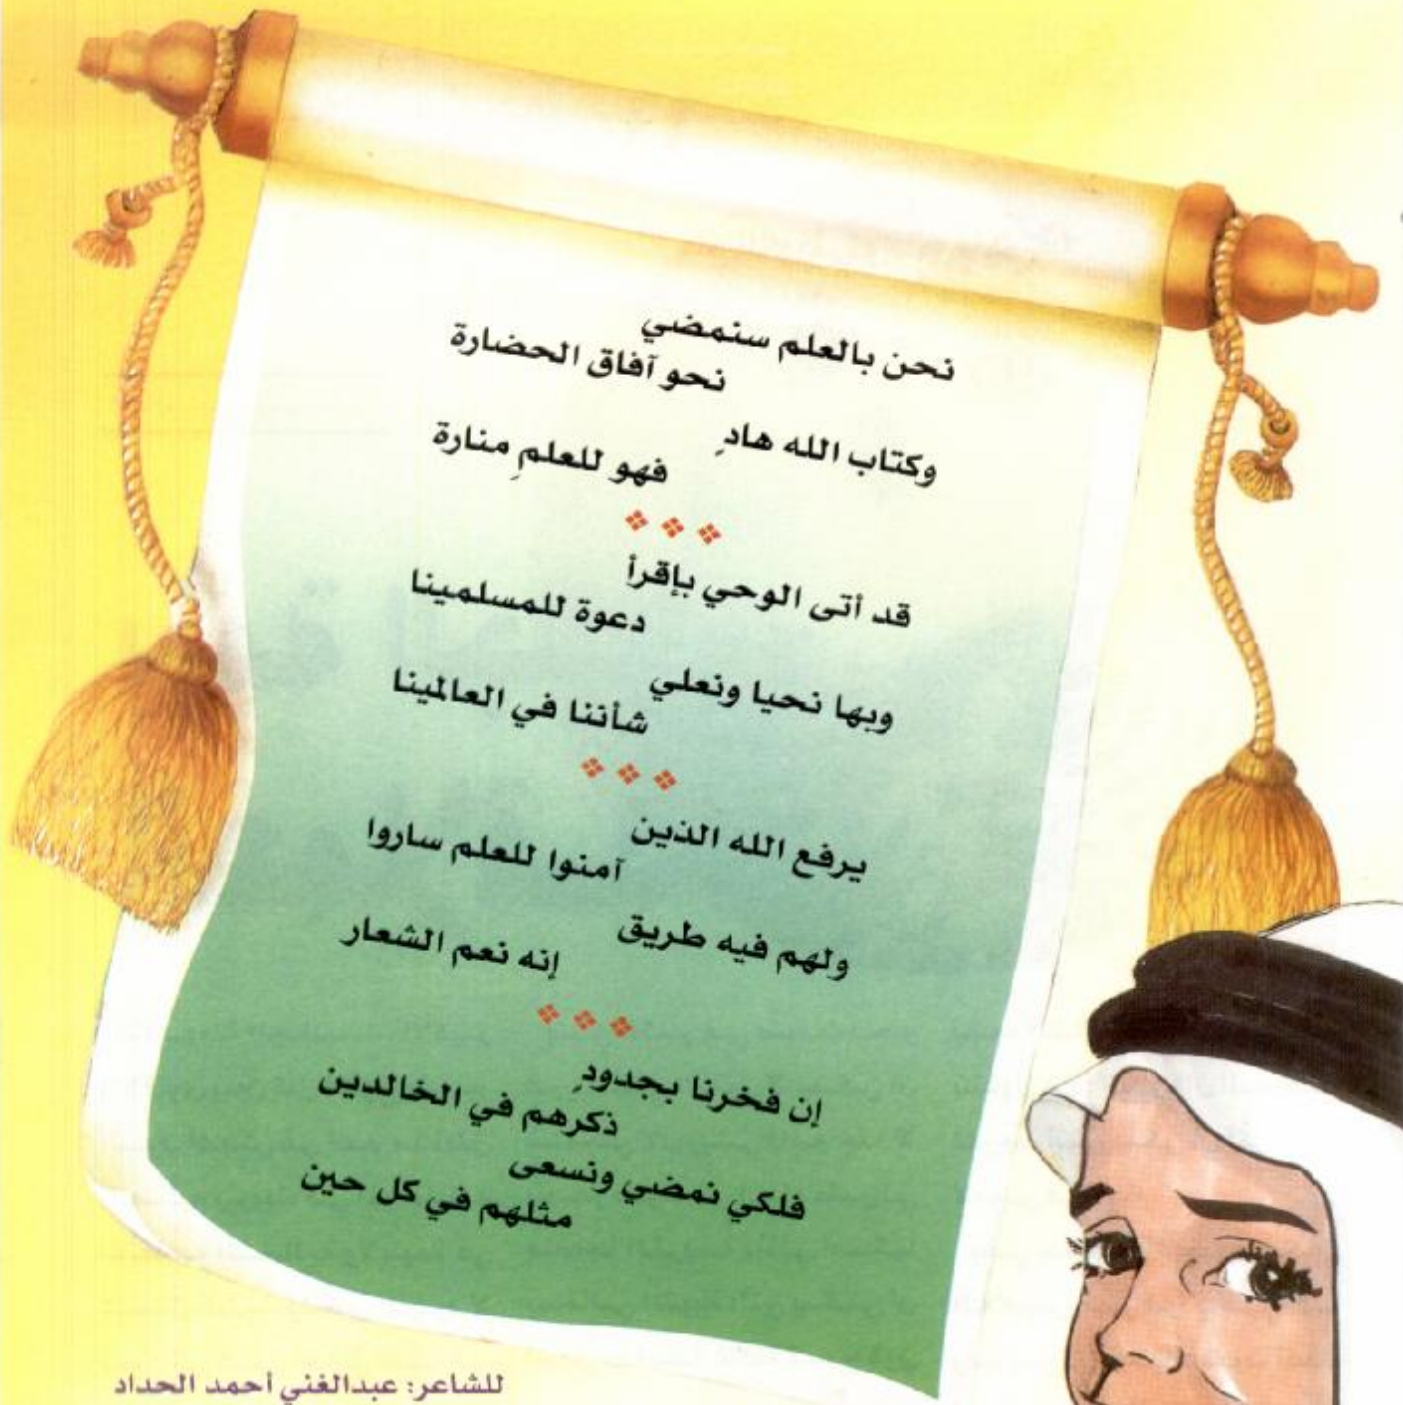 نحن بالعلم سنمضي
نحو آفاق الحضارة
وكتاب الله هادٍ
فهو للعلمِ منارة
قد أتى الوحي بإقرأ
دعوة للمسلمينا
وبها نحيا ونعلي
شأننا في العالمينا
يرفع الله الذين
آمنوا للعلم ساروا
ولهم فيه طريق
إنه نعم الشعار
إن فخرنا بجدودٍ
ذكرهم في الخالدين
فلكي نمضي ونسعى
مثلهم في كل حين
للشاعر: عبدالغني أحمد الحداد